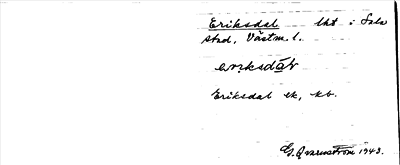 Eriksdal lht i Sala
stad, Västm. l.
Eriksdal ek, kb.
G. Qvarnström 1943.